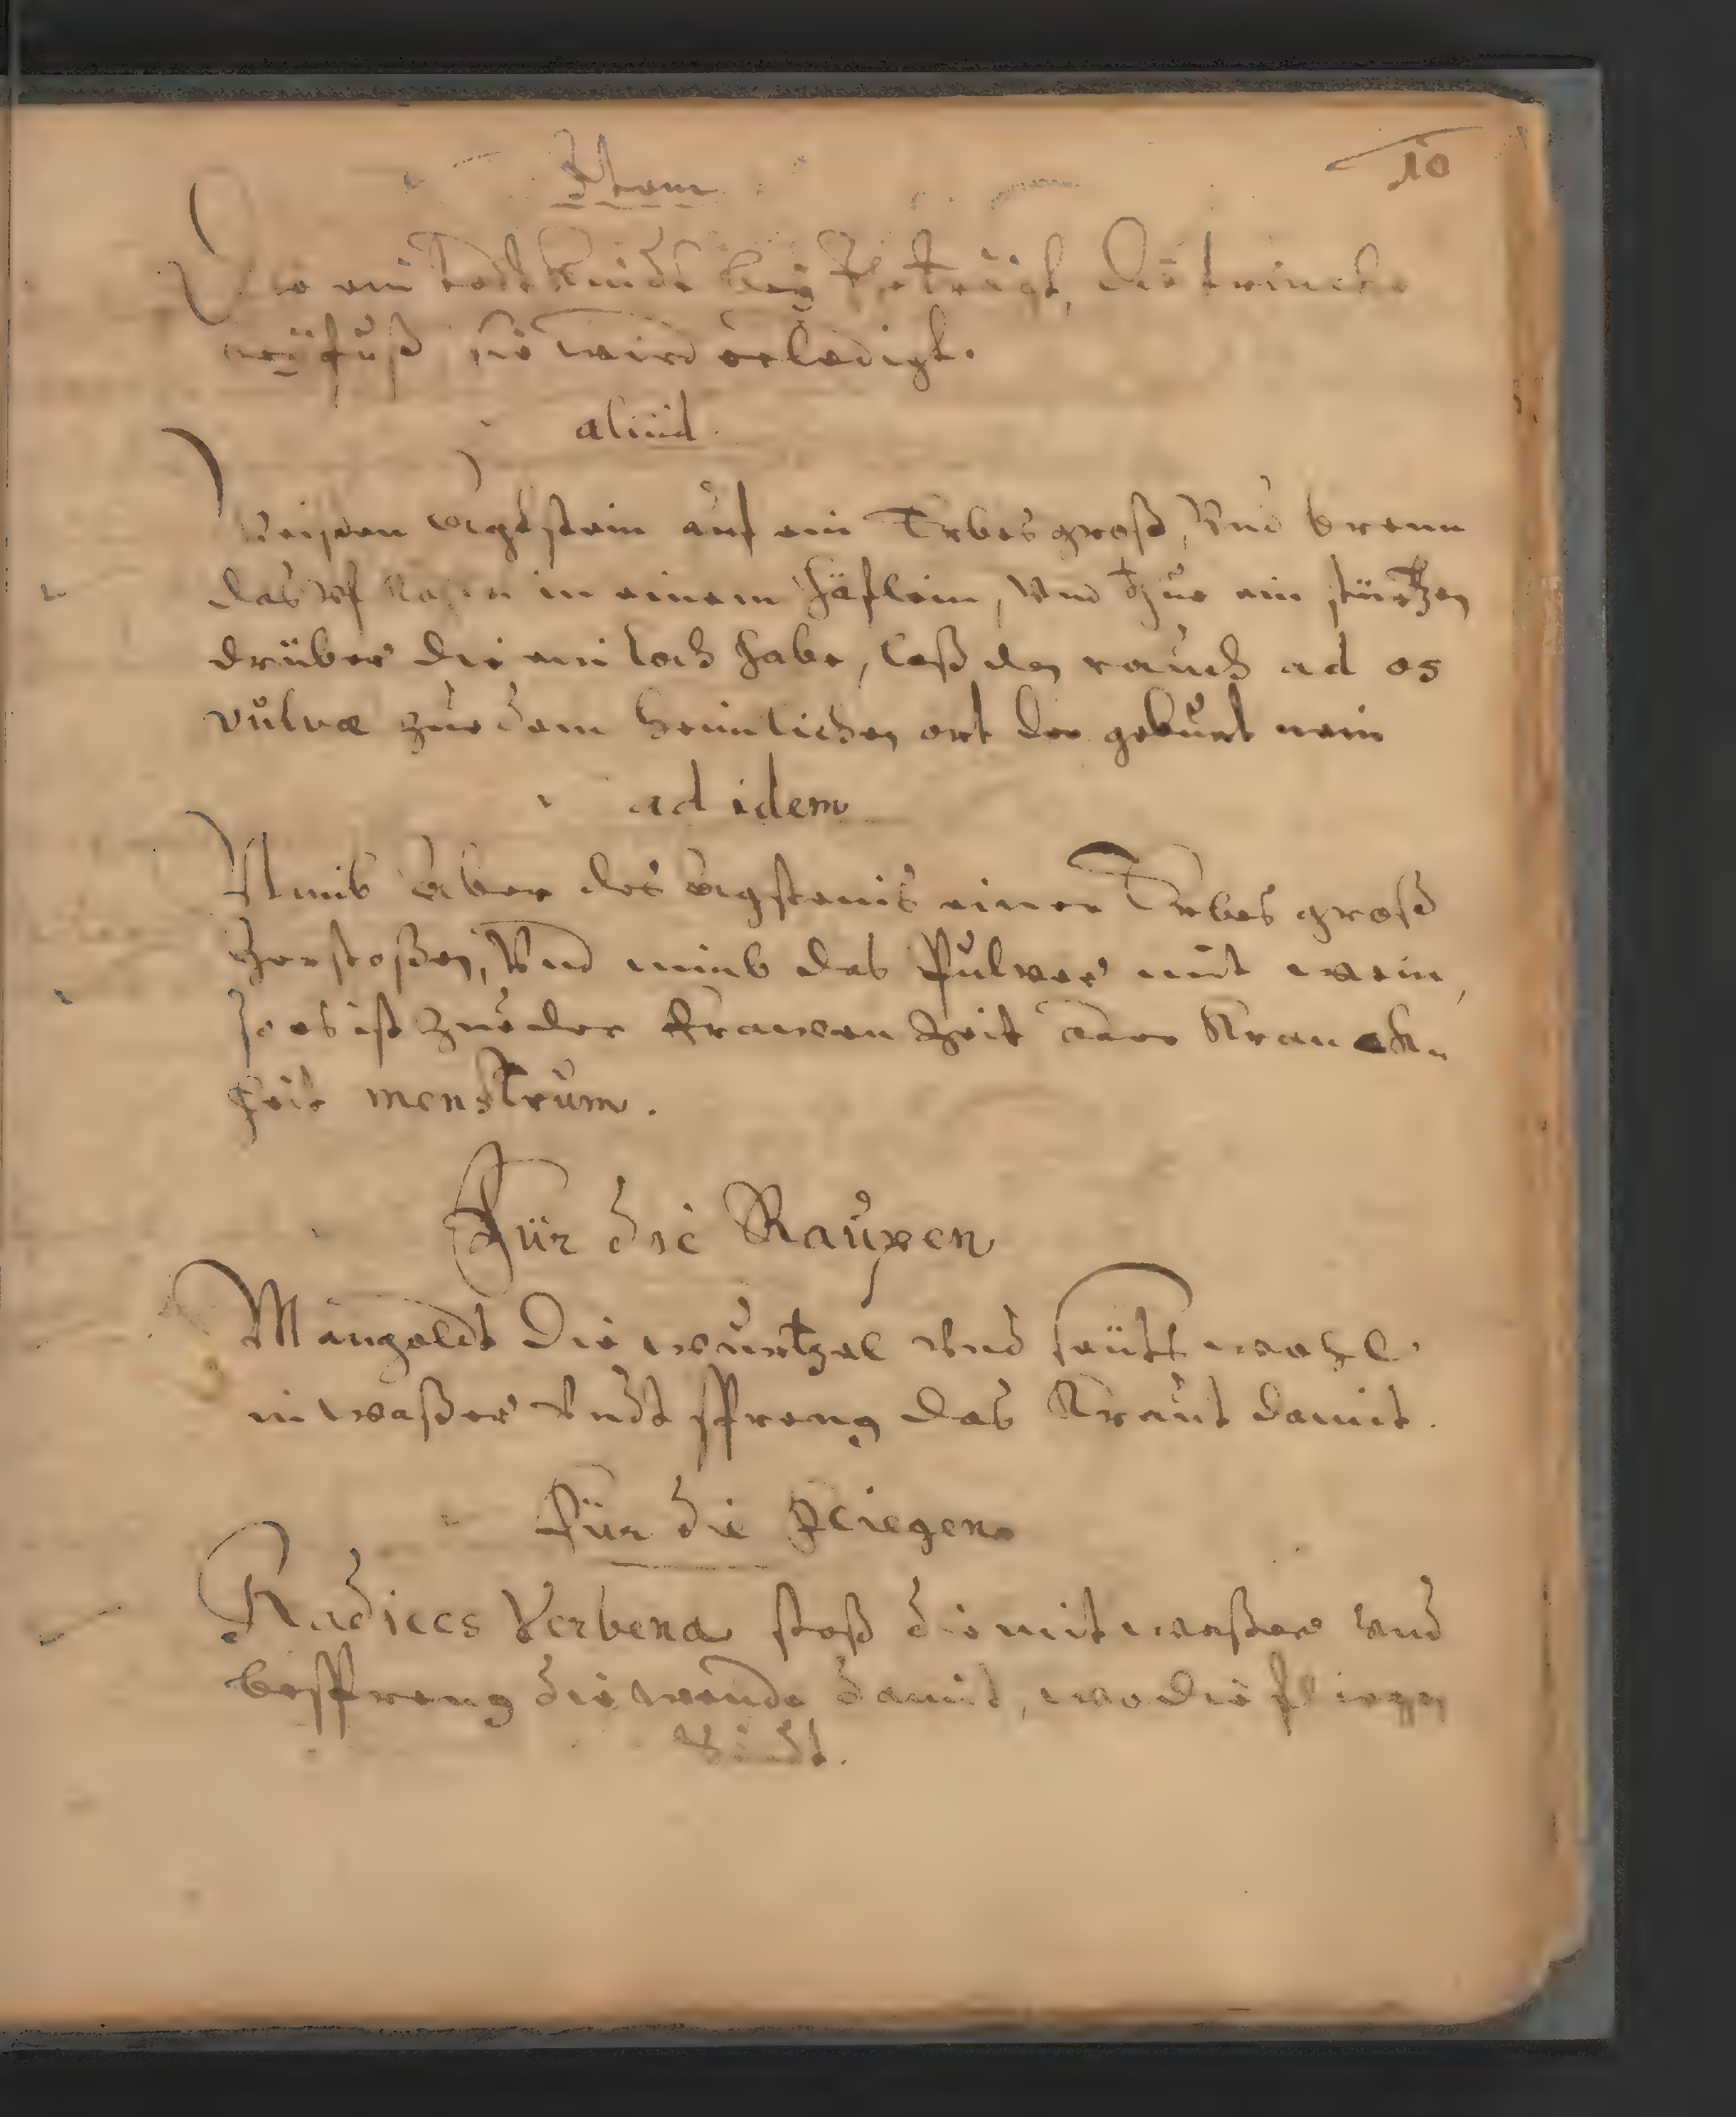 10
Item
Die ein todt kindt bey Ihr trägt, die trincke
beÿfuß, sie wird erledigt.
aliud.
Weissen Agtstein auf ein Erbes groß, Vnd brenn
das vf in einem häflein, vnd thue ein stürtzen
drüber die ein loch habe, laß den rauch ad os
vulvæ zue dem heimlichen ort der geburt nein
ad idem
Nimb Aber des Agsteins einer Erbes groß
zerstoßen, Vnd nimb das Pulver mit wein,
so es ist zue der frawen Zeit oder Kranck-
heit menstruum.
Für die Raupen
Mangoldt die wurtzel vnd seütt wohl
in waßer Vndt spreng das Kraut damit.
Für die Fliegen
Radices Verbena stoß die mit waßer vnd
bespreng die wende damit, wo die fliegen